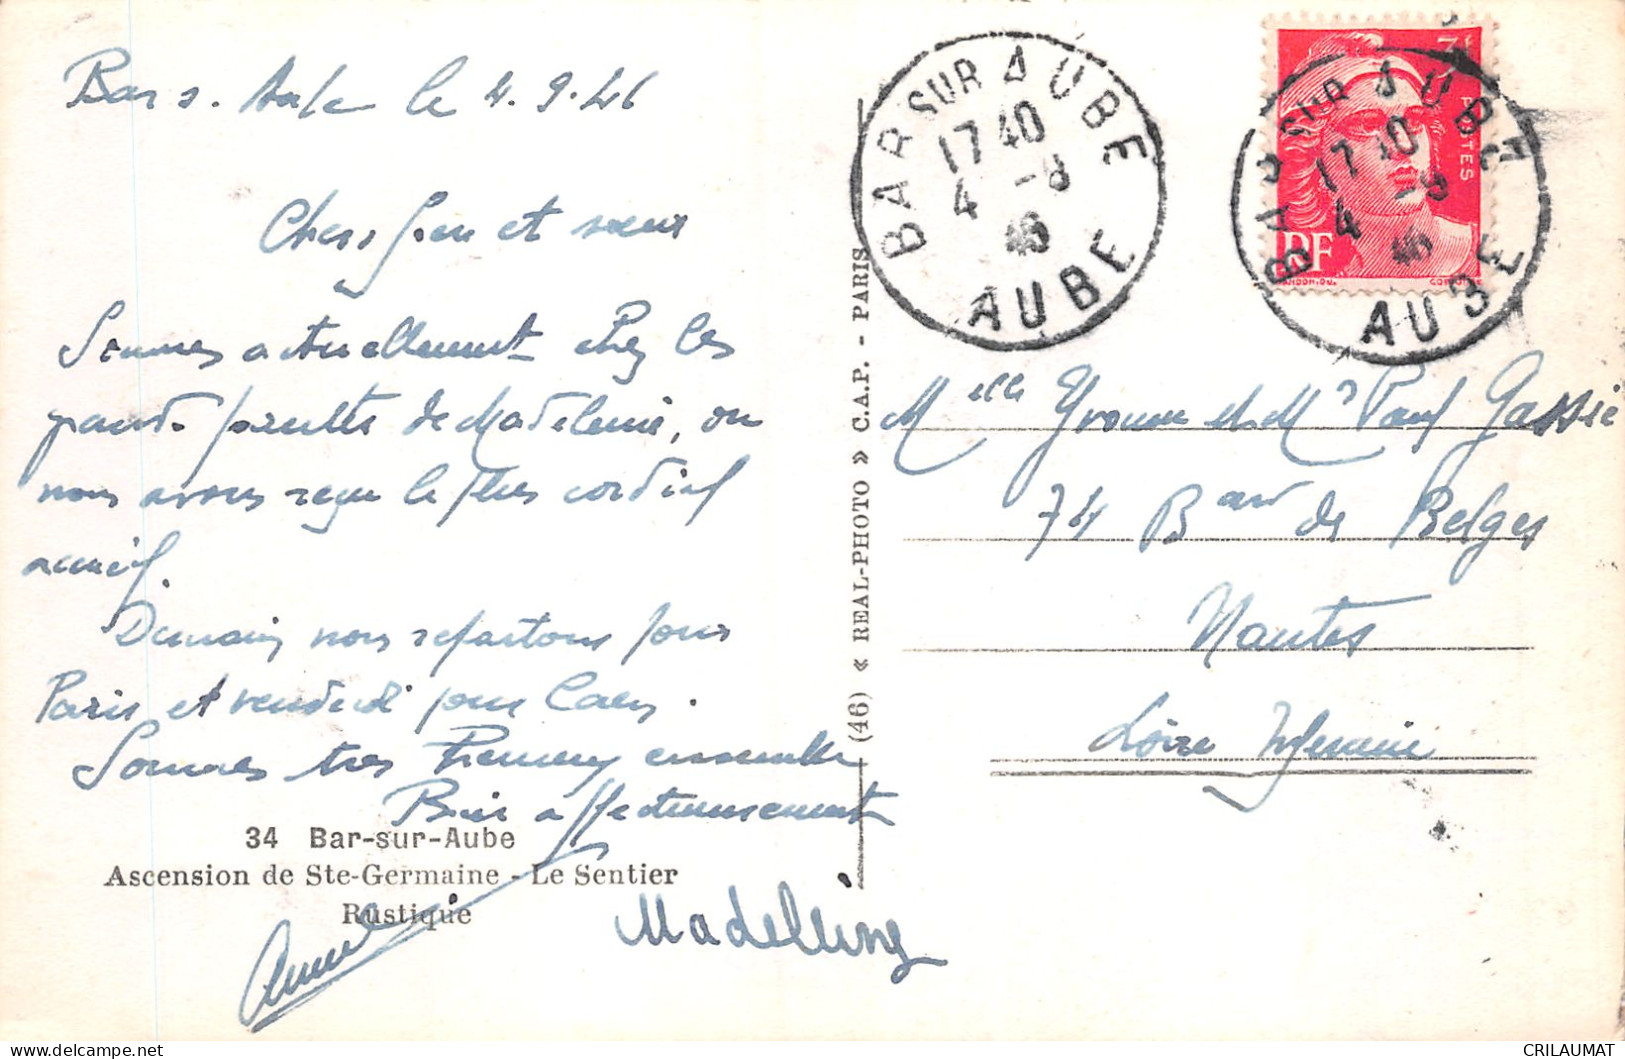 Bar s. Aube le 4.9.46
Chers frère et sœur
Sommes actuellement chez les
grands parents de Madeleine, où
nous avons reçu le plus cordial
accueil.
Demain nous repartons pour
Paris et vendredi pour Caen.
Sommes très heureux ensemble
Bien affectueusement
Madeleine
34 Bar-sur-Aube
Ascension de Ste-Germaine - Le Sentier
Rustique
(46) « REAL-PHOTO » C.A.P. - PARIS
BAR SUR AUBE
17 40
4 -9
46
AUBE
3f
POSTES
RF
GANDON.DU.
BAR SUR AUBE
17 40
4 -9
46
AUBE
Melle Yvonne et Mr Paul Gassie
74 Bard de Belges
Nantes
Loire Inférieure
CRILAUMAT